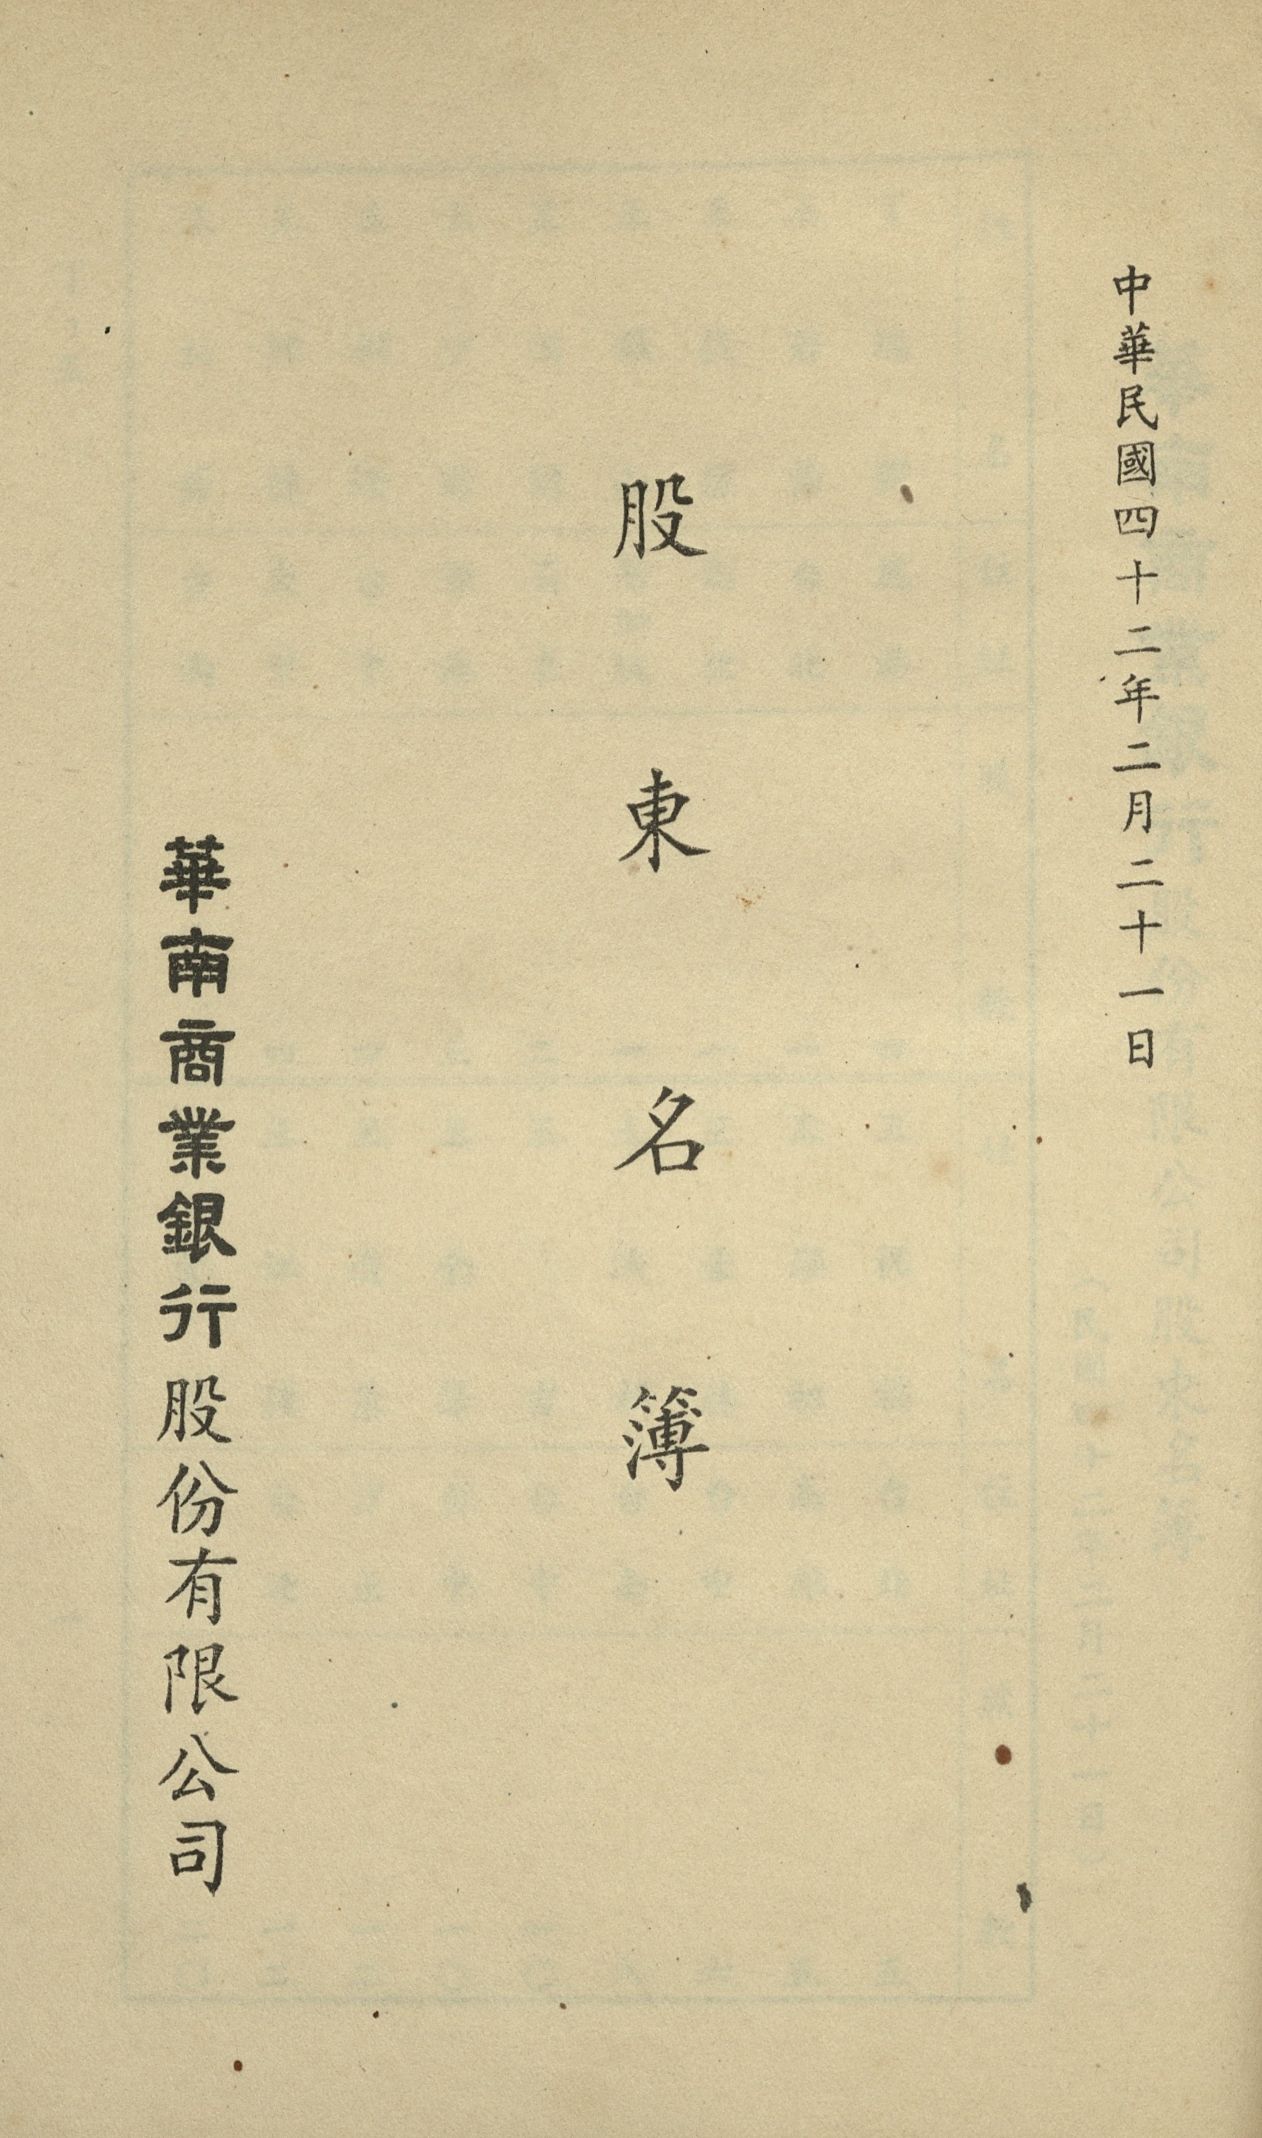 中華民國四十二年二月二十一日
股東名簿
華南商業銀行股份有限公司